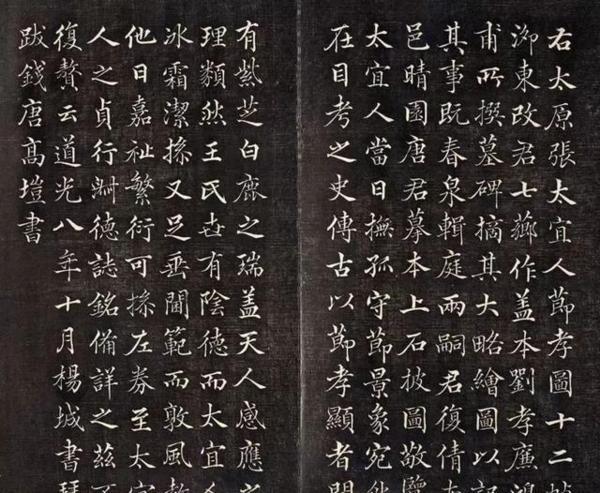 右太原張太宜人節孝圖十二幀
泖東改君七薌作盖本劉孝廉鴻
甫所撰墓碑摘其大略繪圖以記
其事既春泉輯庭兩嗣君復倩
邑晴園唐君摹本上石披圖敬
太宜人當日撫孤守節景象宛然
在目考之史傳古以節孝顯者
有紫芝白鹿之瑞盖天人感應之
理類然王氏世有陰德而太宜人
冰霜潔操又足垂閫範而敦風
他日嘉祉繁衍可操左券至太宜
人之貞行嗣德誌銘備詳之茲不
復贅云道光八年十月楊城書
跋錢唐高塏書